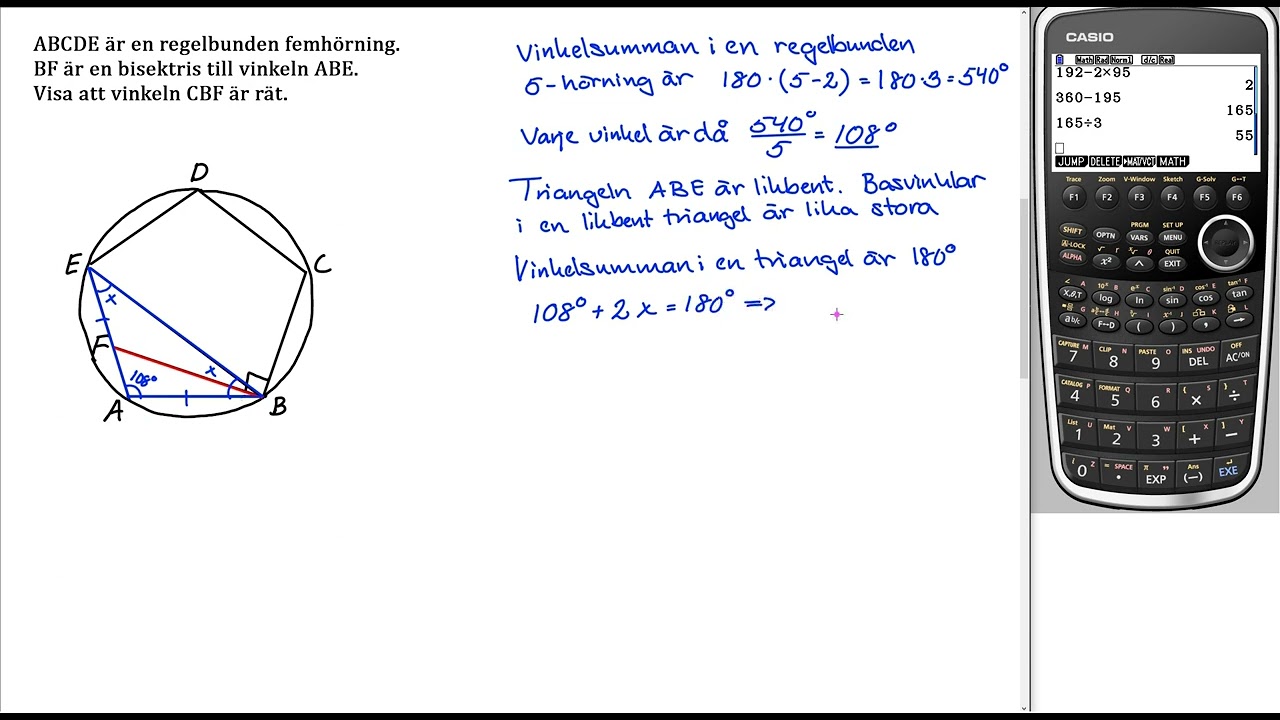 ABCDE är en regelbunden femhörning.
BF är en bisektris till vinkeln ABE.
Visa att vinkeln CBF är rät.
D
E
C
x
F
x
108°
A
B
Vinkelsumman i en regelbunden
5-hörning är 180·(5-2) = 180·3 = 540°
Varje vinkel är då 540°/5 = 108°
Triangeln ABE är likbent. Basvinklar
i en likbent triangel är lika stora
Vinkelsumman i en triangel är 180°
108° + 2x = 180° =>
CASIO
Math Rad Norm1 d/c Real
192-2×95
2
360-195
165
165÷3
55
JUMP DELETE ▸MAT/VCT MATH
Trace Zoom V-Window Sketch G-Solv G↔T
F1 F2 F3 F4 F5 F6
PRGM SET UP
SHIFT OPTN VARS MENU
A-LOCK QUIT
ALPHA x² ^ EXIT
X,θ,T log ln sin cos tan
a b/c F↔D ( ) , →
CAPTURE M CLIP N PASTE O INS UNDO OFF
7 8 9 DEL AC/ON
CATALOG P FORMAT Q R { S } T
4 5 6 × ÷
List U Mat V W [ X ] Y
1 2 3 + −
i Z = SPACE π " Ans
0 · EXP (−) EXE